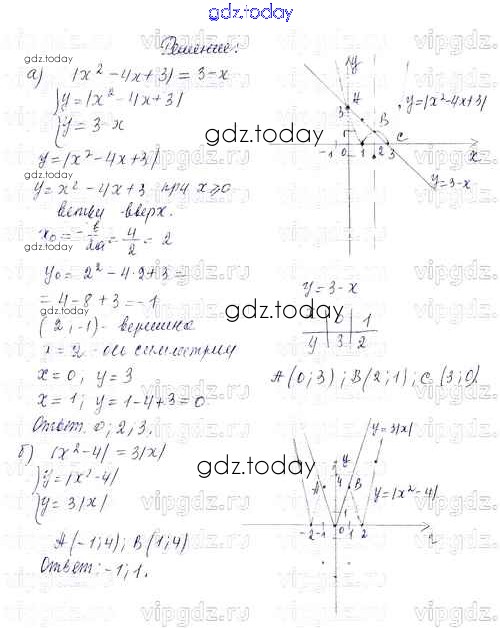 Решение:
а) |x² - 4x + 3| = 3 - x
{ y = |x² - 4x + 3|
{ y = 3 - x
y = |x² - 4x + 3|
y = x² - 4x + 3 при x ≥ 0
ветви вверх.
x₀ = -b/2a = 4/2 = 2
y₀ = 2² - 4·2 + 3 =
= 4 - 8 + 3 = -1
(2; -1) - вершина
x = 2 - ось симметрии
x = 0, y = 3
x = 1; y = 1 - 4 + 3 = 0
Ответ. 0; 2; 3.
y
A
3
B
y = |x² - 4x + 3|
C
-1 0 1 2 3 x
y = 3 - x
y = 3 - x
0 1
y 3 2
A(0; 3); B(2; 1); C(3; 0)
б) |x² - 4| = 3|x|
{ y = |x² - 4|
{ y = 3|x|
A(-1; 4); B(1; 4)
Ответ: -1; 1.
y = 3|x|
y
A 4 B
y = |x² - 4|
1
-2 -1 0 1 2
gdz.today
gdz.today
gdz.today
gdz.today
gdz.today
gdz.today
gdz.today
gdz.today
vipgdz.ru